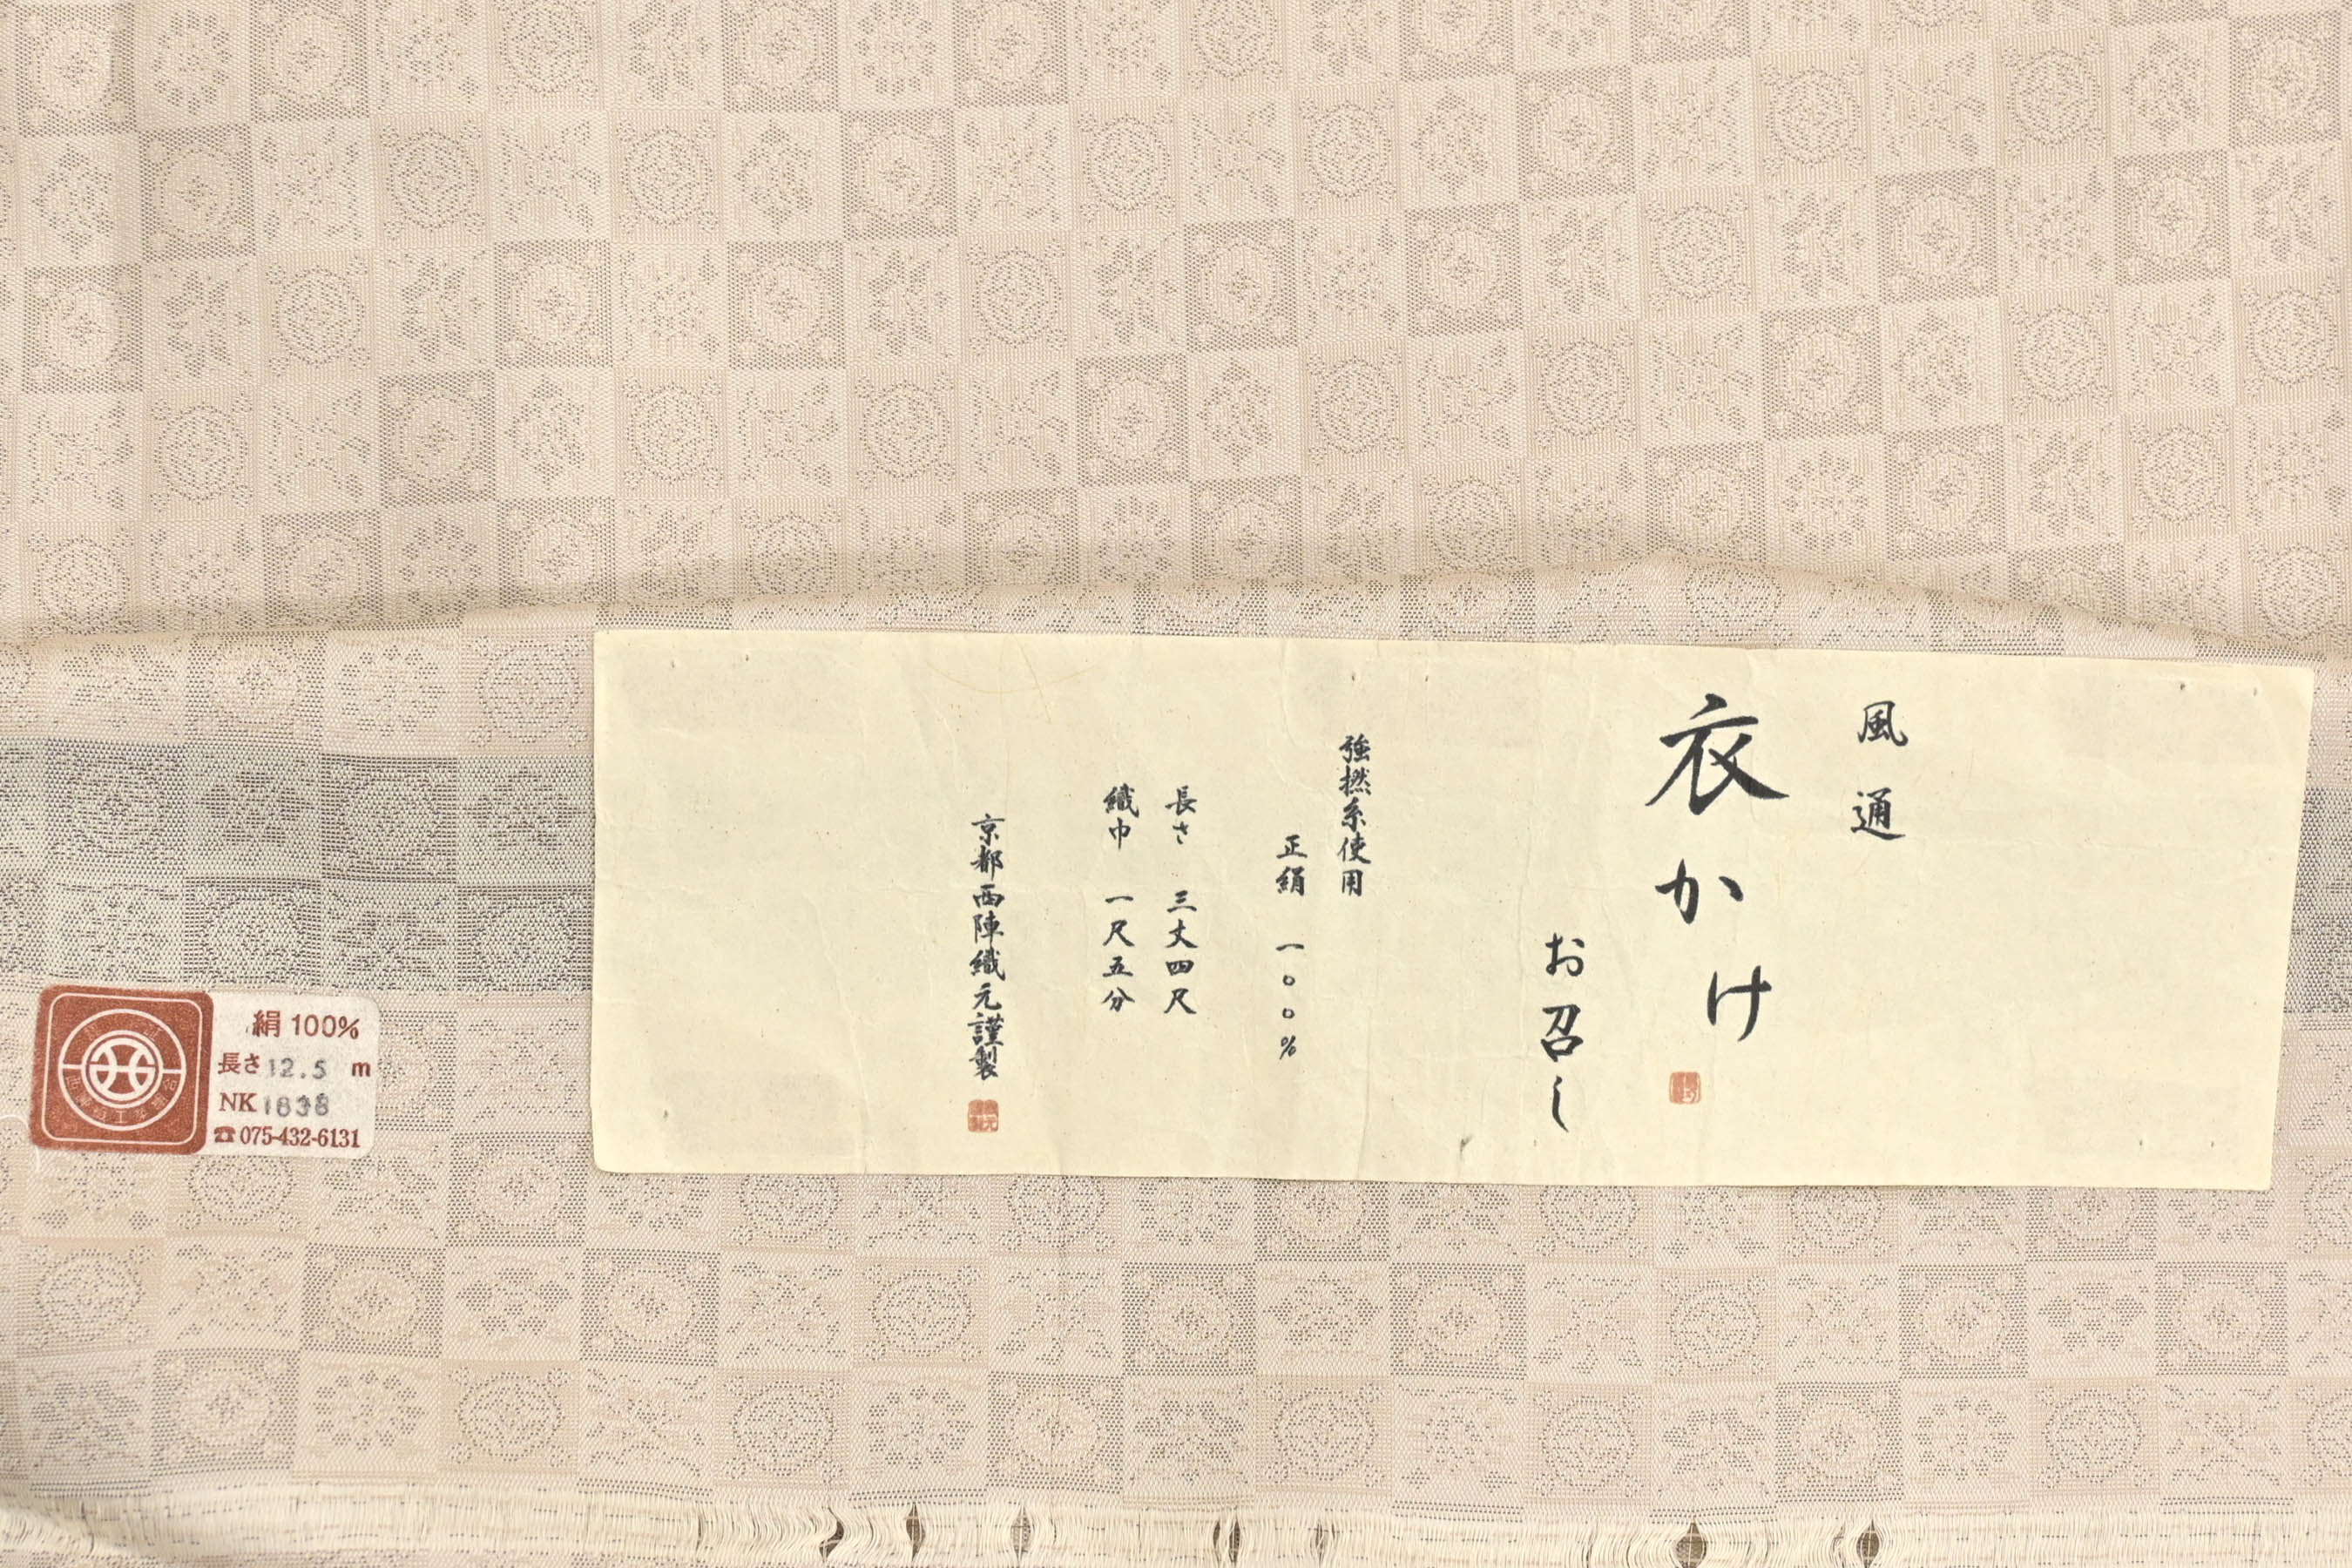 風通
衣かけ
お召し
強撚糸使用
正絹 一〇〇%
長さ 三丈四尺
織巾 一尺五分
京都西陣織元謹製
絹 100%
長さ 12.5 m
NK 1838
☎ 075-432-6131